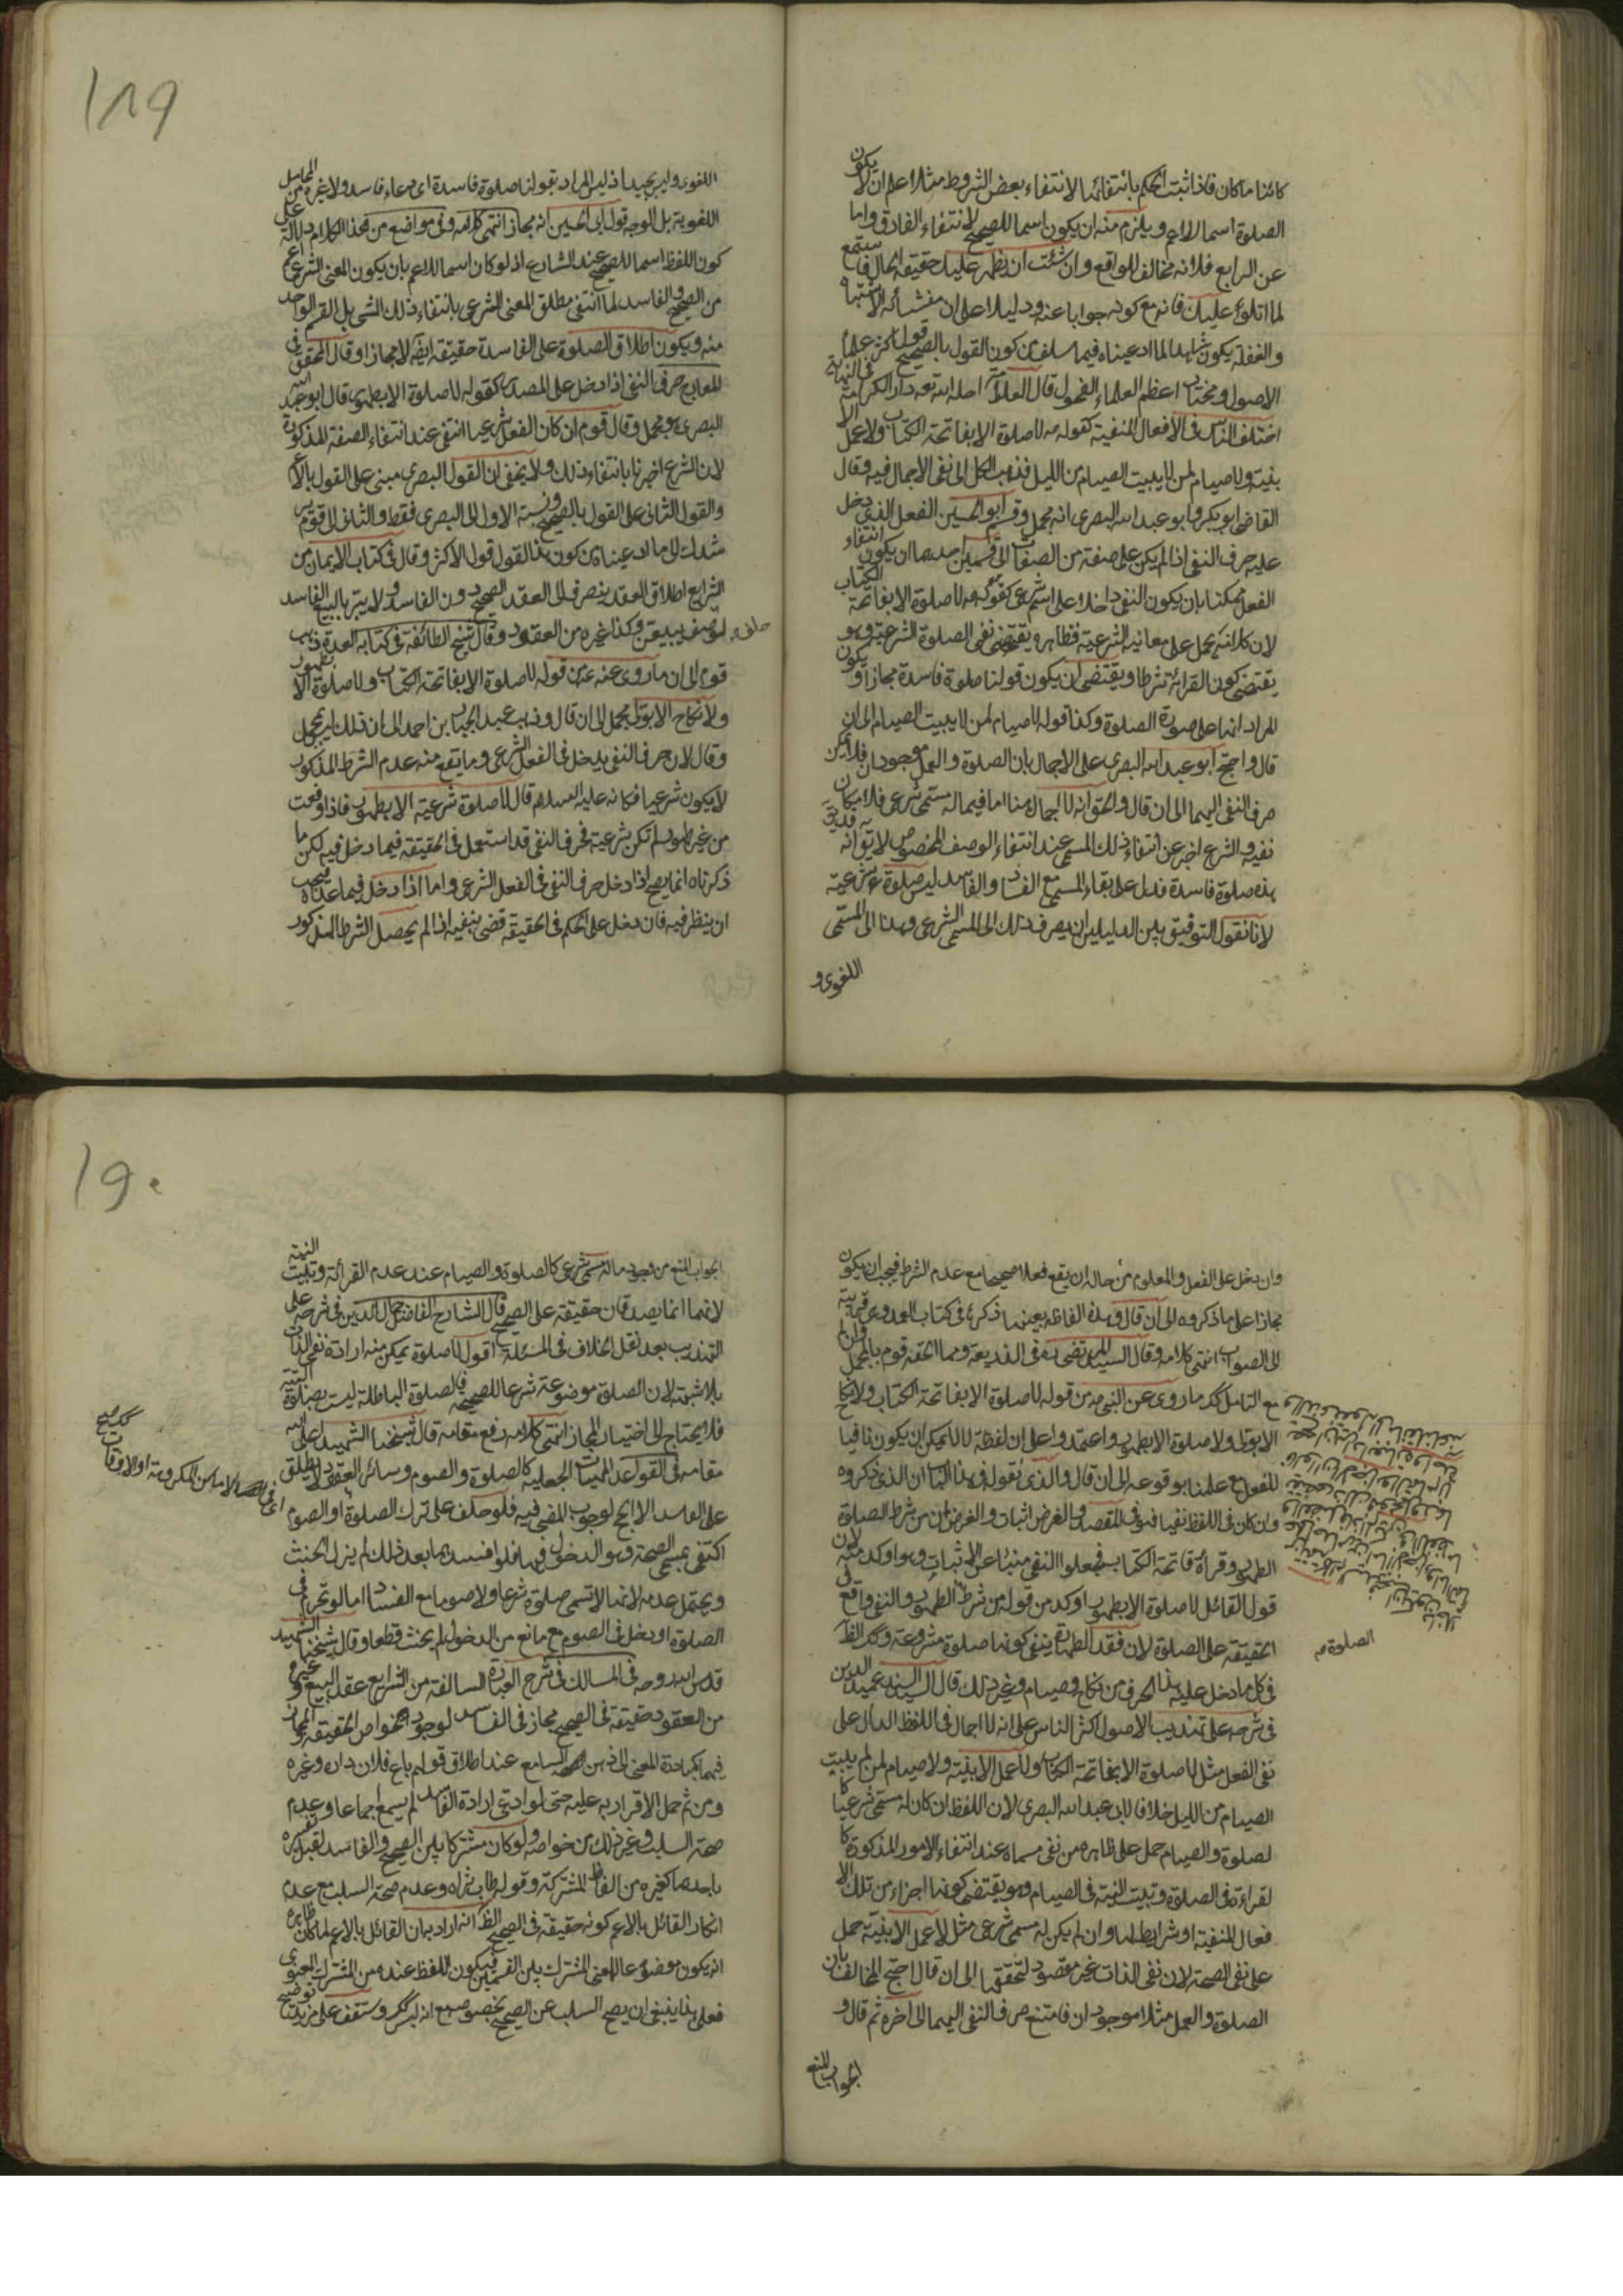 كائنا ما كان فاذا ثبت الحكم بانتفائها لانتفاء بعض الشروط مثلا اعلم ان لا يكون
الصلوة اسما للاعم ويلزم منه ان يكون اسما للصحيح لانتفاء الفارق واما
عن الرابع فلانه مخالف للواقع وان شئت ان يظهر عليك حقيقة الحال فاستمع
لما اتلوه عليك فانه مع كونه جوابا عنه ودليلا على ان منشائه الاشتباه
والغفلة يكون شاهدا لما ادعيناه فيما سلف من كون القول بالصحيح قول اكثر علماء
الاصول ومختار اعظم العلماء الفحول قال العلامة احله الله تعه دار الكرامة في النهاية
اختلف الناس في الافعال المنفية كقوله ص لا صلوة الا بفاتحة الكتاب ولا عمل الا
بنية ولا صيام لمن لا يبيت الصيام من الليل فذهب الكل الى نفى الاجمال فيه وقال
القاضى ابو بكر وابو عبد الله البصرى انه مجمل وقسم ابو الحسين الفعل الذى دخل
عليه حرف النفى اذا لم يكن على صفة من الصفات الى قسمين احدهما ان يكون انتفاء
الفعل ممكنا بان يكون النفى داخلا على اسم شرعى كقوله ص لا صلوة الا بفاتحة الكتاب
لان كلامه يحمل على معانيه الشرعية فظاهره يقتضى نفى الصلوة الشرعية وهو
يقتضى كون القرائة شرطا ويقتضى ان يكون قولنا صلوة فاسدة مجازا ويكون
المراد انها على صورة الصلوة وكذا قوله لا صيام لمن لا يبيت الصيام الى ان
قال واحتج ابو عبد الله البصرى على الاجمال بان الصلوة والعمل موجودان فلا يمكن
صرف النفى اليهما الى ان قال والحق انه لا اجمال هنا اما فيما له مسمى شرعى فلامكان
نفيه والشرع اخبر عن انتفاء ذلك المسمى عند انتفاء الوصف المخصوص لا يق انه
هذه صلوة فاسدة فدل على بقاء المسمى مع الفساد والفاسد ليس صلوة شرعية
لانا نقول التوفيق بين الدليلين ان يصرف ذلك الى المسمى الشرعى وهذا الى المسمى
اللغوى و
١٨٩
اللغوى وليس بجيد اذ ليس المراد بقولنا صلوة فاسدة اى دعاء فاسد ولا غيره من المحامل
اللغوية بل الوجه قول ابى الحسين انه مجاز انتهى كلامه وفى مواضع من هذا الكلام دلالة على
كون اللفظ اسما للصحيح عند الشارع اذ لو كان اسما للاعم بان يكون المعنى الشرعى اعم
من الصحيح والفاسد لما انتفى مطلق المعنى الشرعى بانتفاء ذلك الشى بل القسم الواحد
منه ويكون اطلاق الصلوة على الفاسدة حقيقة ايضا لا مجازا وقال المحقق فى
المعارج حرف النفى اذا دخل على المصدر كقوله لا صلوة الا بطهور قال ابو عبد الله
البصرى هو مجمل وقال قوم ان كان الفعل شرعيا انتفى عند انتفاء الصفة المذكورة
لان الشرع اخبرنا بانتفاء ذلك ولا يخفى ان القول البصرى مبنى على القول بالاعم
والقول الثانى على القول بالصحيح ونسبة الاول الى البصرى فقط والثانى الى قوم
شدك الى ما ادعيناه من كون هذا القول قول الاكثر وقال فى كتاب الايمان من
الشرايع اطلاق العقد ينصرف الى العقد الصحيح دون الفاسد ولا يبر بالبيع الفاسد
لو حلف ليبيعن وكذا غيره من العقود وقال شيخ الطائفة فى كتابه العدة ذهب
قوم الى ان ما روى عنه ع من قوله لا صلوة الا بفاتحة الكتاب ولا صلوة الا بطهور
ولا نكاح الا بولى مجمل الى ان قال وذهب عبد الجبار بن احمد الى ان ذلك ليس بمجمل
وقال لان حرف النفى يدخل فى الفعل الشرعى وما يقع منه عدم الشرط المذكور
لا يكون شرعيا فكانه عليه السلام قال لا صلوة شرعية الا بطهور فاذا وقعت
من غير طهور لم تكن شرعية فحرف النفى قد استعمل فى الحقيقة فيما دخل فيه لكن ما
ذكرناه انما يصح اذا دخل حرف النفى فى الفعل الشرعى واما اذا دخل فيما عداه فيجب
ان ينظر فيه فان دخل على الحكم فى الحقيقة قضى بنفيه اذا لم يحصل الشرط المذكور
وان دخل على الفعل والمعلوم من حاله ان يقع فعلا صحيحا مع عدم الشرط فيجب ان يكون
مجازا على ما ذكروه الى ان قال وهذه الفاظه بعينها ذكرها فى كتاب العمد وهى قريبة
الى الصواب انتهى كلامه وقال السيد المرتضى ره فى الذريعة ومما الحقه قوم بالمجمل وان لم
مع التامل كك ما روى عن النبى ص من قوله لا صلوة الا بفاتحة الكتاب ولا نكاح
الا بولى ولا صلوة الا بطهور واعتمدوا على ان لفظة لا لا يمكن ان يكون نافيا
للفعل مع علمنا بوقوعه الى ان قال والذى نقوله فى هذا الباب ان الذى ذكروه
وان كان فى اللفظ نفيا فهو فى المقصد والغرض اثبات والغرض ان من شرط الصلوة
الطهور وقرأة فاتحة الكتاب فجعلوا النفى منبئا عن الاثبات وهو اوكد منه لان
قول القائل لا صلوة الا بطهور اوكد من قوله من شرط الصلوة الطهور والنفى واقع فى
الحقيقة على الصلوة لان فقد الطهارة ينفى كونها صلوة مشروعة وكك القول
فى كل ما دخل عليه هذا الحرف من نكاح وصيام وغير ذلك قال السيد عميد الدين
فى شرحه على تهذيب الاصول اكثر الناس على انه لا اجمال فى اللفظ الدال على
نفى الفعل مثل لا صلوة الا بفاتحة الكتاب ولا عمل الا بنية ولا صيام لمن لم يبيت
الصيام من الليل خلافا لابى عبد الله البصرى لان اللفظ ان كان له مسمى شرعيا كا
لصلوة والصيام حمل على ظاهره من نفى مسماه عند انتفاء الامور المذكورة كا
لقراءة فى الصلوة وتبييت النية فى الصيام وهو يقتضى كونها اجزاء من تلك الا
فعال المنفية او شرايط لها وان لم يكن له مسمى شرعى مثل لا عمل الا بنية حمل
على نفى الصحة لان نفى الذات غير مقصود لتحققها الى ان قال احتج المخالف بان
الصلوة والعمل مثلا موجودان فامتنع صرف النفى اليهما الى اخره ثم قال و
الجواب المنع
الصلوة ص
١٩٠
الجواب المنع من وجود ما له مسمى شرعى كالصلوة والصيام عند عدم القرائة وتبييت النية
لانهما انما يصدقان حقيقة على الصحيح قال الشارح الفاضل جمال الدين فى شرحه على
التهذيب بعد نقل الخلاف فى المسئلة اقول لا صلوة يمكن منه ارادة نفى الذات
بلا شبهة لان الصلوة موضوعة شرعا للصحيحة فالصلوة الباطلة ليست بصلوة البتة
فلا يحتاج الى اختيار المجاز انتهى كلامه رفع مقامه قال شيخنا الشهيد اعلى الله
مقامه فى القواعد المهيات الجعلية كالصلوة والصوم وسائر العقود لا يطلق
على الفاسد الا الحج لوجوب المضى فيه فلو حلف على ترك الصلوة او الصوم
اكتفى بمسمى الصحة وهو الدخول فيها فلو افسدها بعد ذلك لم يزل الحنث
ويحتمل عدمه لانها لا تسمى صلوة شرعا ولا صوما مع الفساد اما لو تحرم فى
الصلوة او دخل فى الصوم مع مانع من الدخول لم يحنث قطعا وقال شيخنا الشهيد
قدس الله روحه فى المسالك فى شرح العبارة السالفة من الشرايع عقد البيع وغيره
من العقود حقيقة فى الصحيح مجاز فى الفاسد لوجود خواص الحقيقة والمجاز
فيهما كمبادرة المعنى الى ذهن السامع عند اطلاق قولهم باع فلان داره وغيره
ومن ثم حمل الاقرار به عليه حتى لو ادعى ارادة الفاسد لم يسمع اجماعا وعدم
صحة السلب وغير ذلك من خواصه ولو كان مشتركا بين الصحيح والفاسد لقبل تفسيره
باحدهما كغيره من الفاظ المشتركة وقوله طاب ثراه وعدم صحة السلب مع عدم
انكار القائل بالاعم كونه حقيقة فى الصحيح الظ انه اراد به ان القائل بالاعم لما كان ظاهره
انه يكون موضوعا للمعنى المشترك بين القسمين فيكون اللفظ عنده من المشترك المعنوى
فعلى هذا ينبغى ان يصح السلب عن الصحيح بخصوصه مع انه ليس كك وستقف على مزيد توضيح